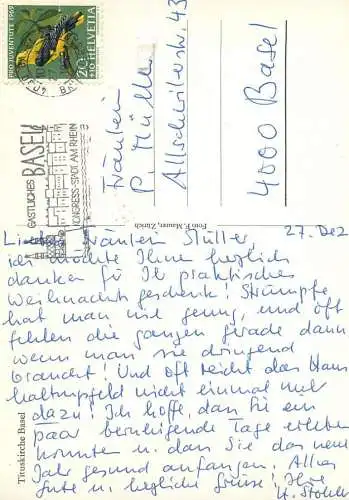 PRO JUVENTUTE 1969
HELVETIA
20+10
GASTLICHES
BASEL
KONGRESS-STADT AM RHEIN
Fräulein
P. Müller
Allschwilerstr. 43
4000 Basel
Foto P. Maurer, Zürich
Tituskirche Basel
27. Dez
Liebes Fräulein Müller,
ich möchte Ihnen herzlich
danken für Ihr praktisches
Weihnachtsgeschenk! Strümpfe
hat man nie genug, und oft
fehlen die ganzen gerade dann
wenn man sie dringend
braucht! Und oft reicht das Haus
haltungsgeld nicht einmal mehr
dazu! Ich hoffe, dass Sie ein
paar beruhigende Tage erleben
konnten u. dass Sie das neue
Jahr gesund anfangen. Alles
Gute u. herzliche Grüsse! Ihre